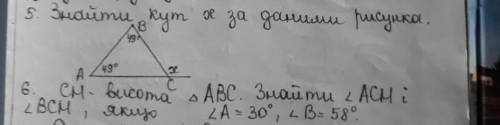 5. Знайти кут x за даними рисунка.
B
49°
A 49° x
C
6. CH - висота △ABC. Знайти ∠ACH і
∠BCH, якщо ∠A = 30°, ∠B = 58°.